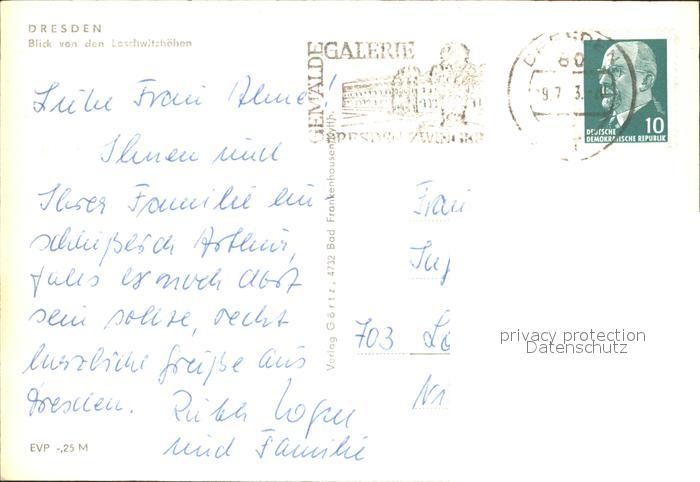 DRESDEN
Blick von den Loschwitzhöhen
GEMÄLDEGALERIE
DRESDEN ZWINGER
DRESDEN
DEUTSCHE
DEMOKRATISCHE REPUBLIK
10
Liebe Frau
Ihnen und
Ihrer Familie ein
schließlich Arthur,
falls er noch dort
sein sollte, recht
herzliche Grüße aus
Dresden.
und Familie
EVP -,25 M
Verlag Görtz, 4732 Bad Frankenhausen/Kyffh.
Frau
703
privacy protection
Datenschutz